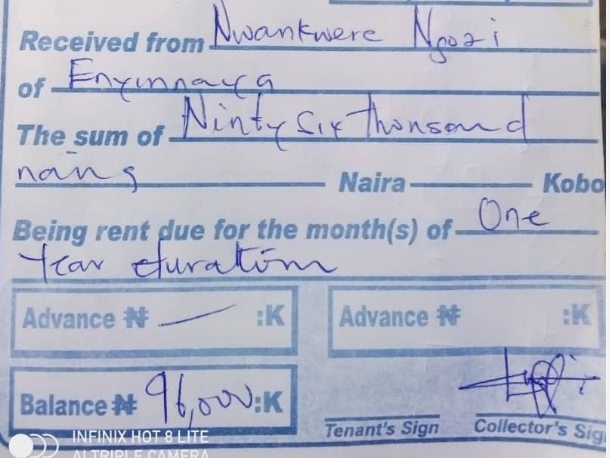 Received from Nwankwere Ngozi
of Enyinnaya
The sum of Ninty Six Thousand
naira Naira Kobo
Being rent due for the month(s) of One
Year duration
Advance ₦ :K Advance ₦ :K
Balance ₦ 96,000 :K
Tenant's Sign Collector's Sig
INFINIX HOT 8 LITE
AI TRIPLE CAMERA